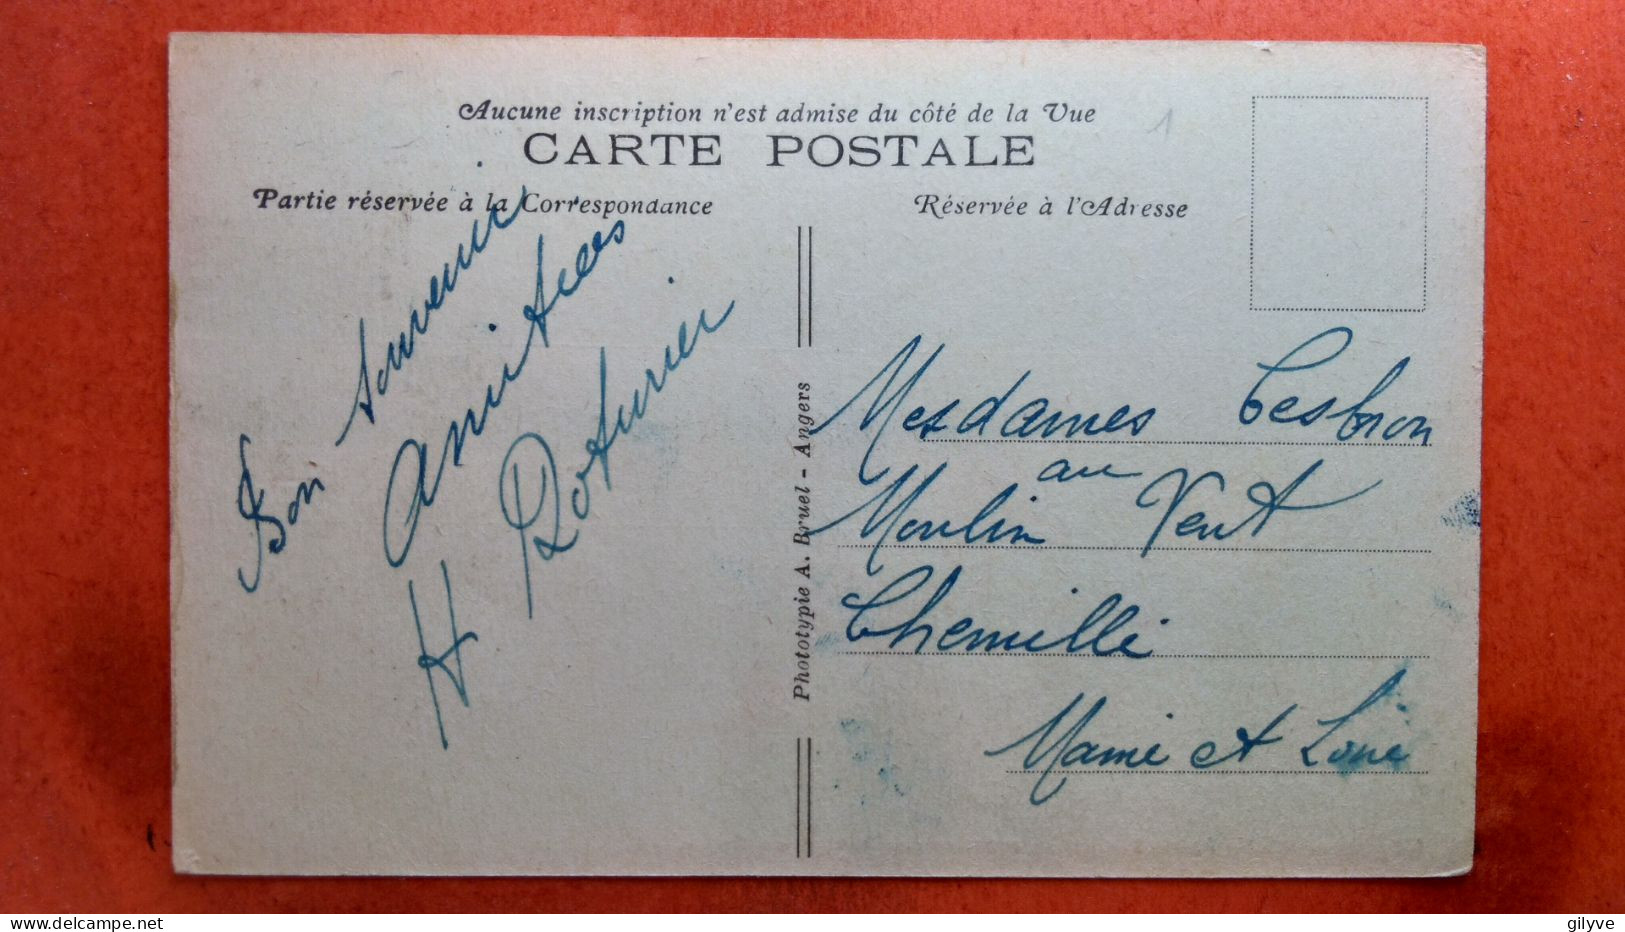 Aucune inscription n'est admise du côté de la Vue
1
CARTE POSTALE
Partie réservée à la Correspondance
Réservée à l'Adresse
Bon souvenir
Amitiées
H Roturier
Phototypie A. Bruel - Angers
Mesdames Cesbron
au
Moulin Vent
Chemillé
Maine et Loire
gilyve